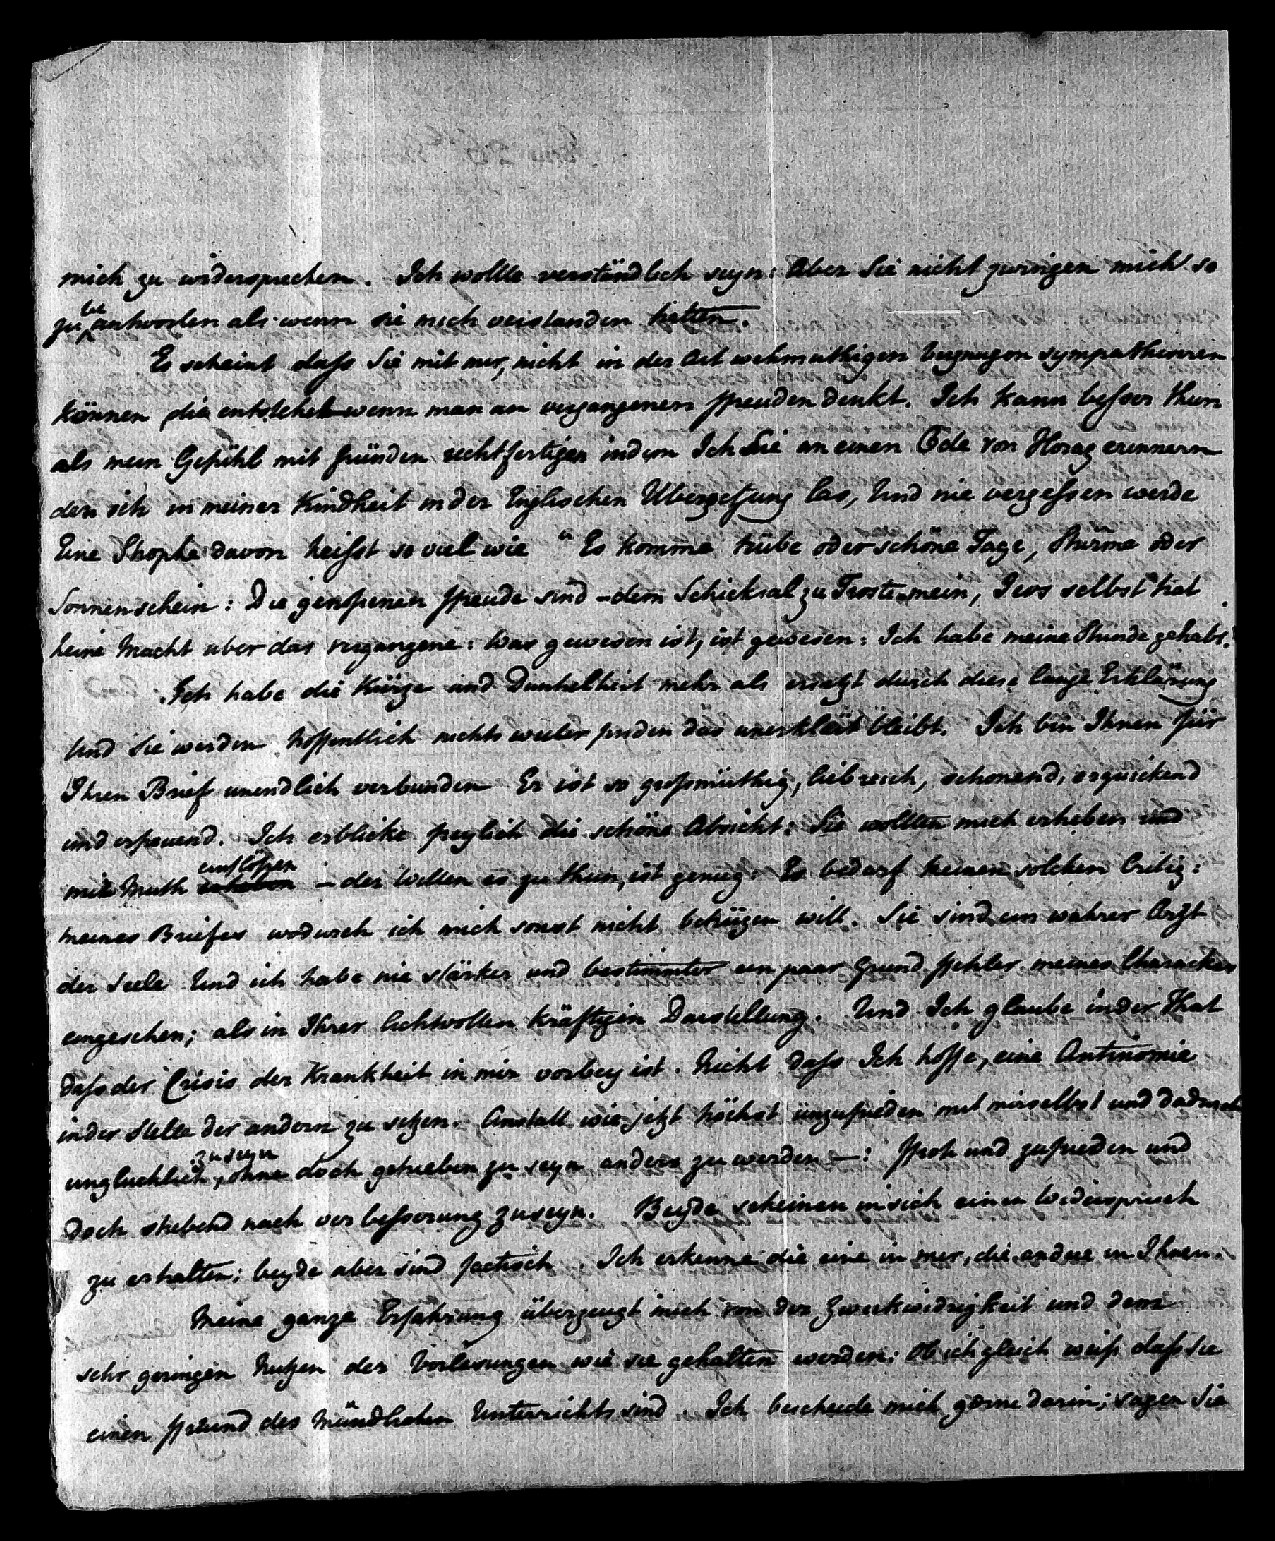 mich zu widersprechen. Ich wollte verständlich seyn: Aber Sie nicht zwingen mich so
zu beantworten als wenn sie mich verstanden hetten.
Es scheint dass Sie mit mir, nicht in der Art wehmuthigen sympathisiren
können die entstehen wenn man an vergangenen Freuden denkt. Ich kann besser thun
als mein Gefühl mit Gründen rechtfertigen indem Ich Sie an einen Ode von Horaz erinnern
den ich in meiner Kindheit in der Englischen Übersetzung las, Und nie vergessen werde
Eine Strophe davon heisst so viel wie "Es komme trübe oder schöne Tage, Sturme oder
Sonnenschein: Die genossenen Freude sind dem Schicksal zu Trotz mein, Zevs selbst hat
keine Macht uber das vergangene: Was gewesen ist, ist gewesen: Ich habe meine Stunde gehabt.
Ich habe die Kürze und Dunkelheit mehr als ersetzt durch diese lange Erklärung
Und Sie werden hoffentlich nichts weiter finden das unerklärt bleibt. Ich bin Ihnen für
Ihren Brief unendlich verbunden Er ist so grossmüthig, liebreich, schonend, erquickend
und erfreuend. Ich erblicke die schöne Absicht: Sie wollten mich erheben und
mir Muth einflössen erheben – der Willen es zu thun, ist genug. Es bedarf keinen solchen Critiz:
meines Briefes wodurch ich mich sonst nicht will. Sie sind ein wahrer Arzt
der Seele Und ich habe nie stärker und bestimmter ein paar Grund Fehler meines Charackters
eingesehen; als in Ihrer lichtvollen kräftigen Darstellung. Und Ich glaube in der That
dass der Crisis der Krankheit in mir vorbey ist. Nicht dass Ich hoffe, eine Antinomie
in der Stelle der andern zu setzen. Anstatt wie jetzt höchst unzufrieden mit mir selbst und dadurch
unglucklich zu seyn, ohne doch getrieben zu seyn anders zu werden –: Froh und zufrieden und
doch strebend nach verbesserung zu seyn. Beyde scheinen in sich einen Widerspruch
zu erhalten; beyde aber sind factisch. Ich erkenne die eine in mir, die andre in Ihnen.
Meine ganze Erfahrung überzeugt mich von der Zweckwidrigkeit und dem
sehr geringen Nutzen der Vorlesungen wie sie gehalten werden: Ob ich gleich weiss dass Sie
einen Freund des Mündlichen Unterrichts sind. Ich bescheide mich gerne darin; sagen Sie